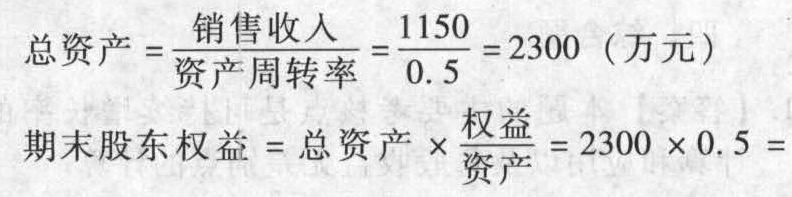 总资产 = 销售收入/资产周转率 = 1150/0.5 = 2300 (万元)
期末股东权益 = 总资产 × 权益/资产 = 2300 × 0.5 =